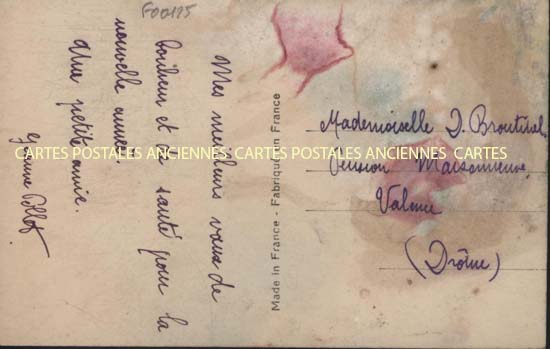 F00195
Mes meilleurs vœux de
bonheur et de santé pour la
nouvelle année
Une petite amie.
Yvonne
Made in France - Fabriqué en France
Mademoiselle D.
Pension Maisonneuve
Valence
(Drôme)
CARTES POSTALES ANCIENNES CARTES POSTALES ANCIENNES CARTES